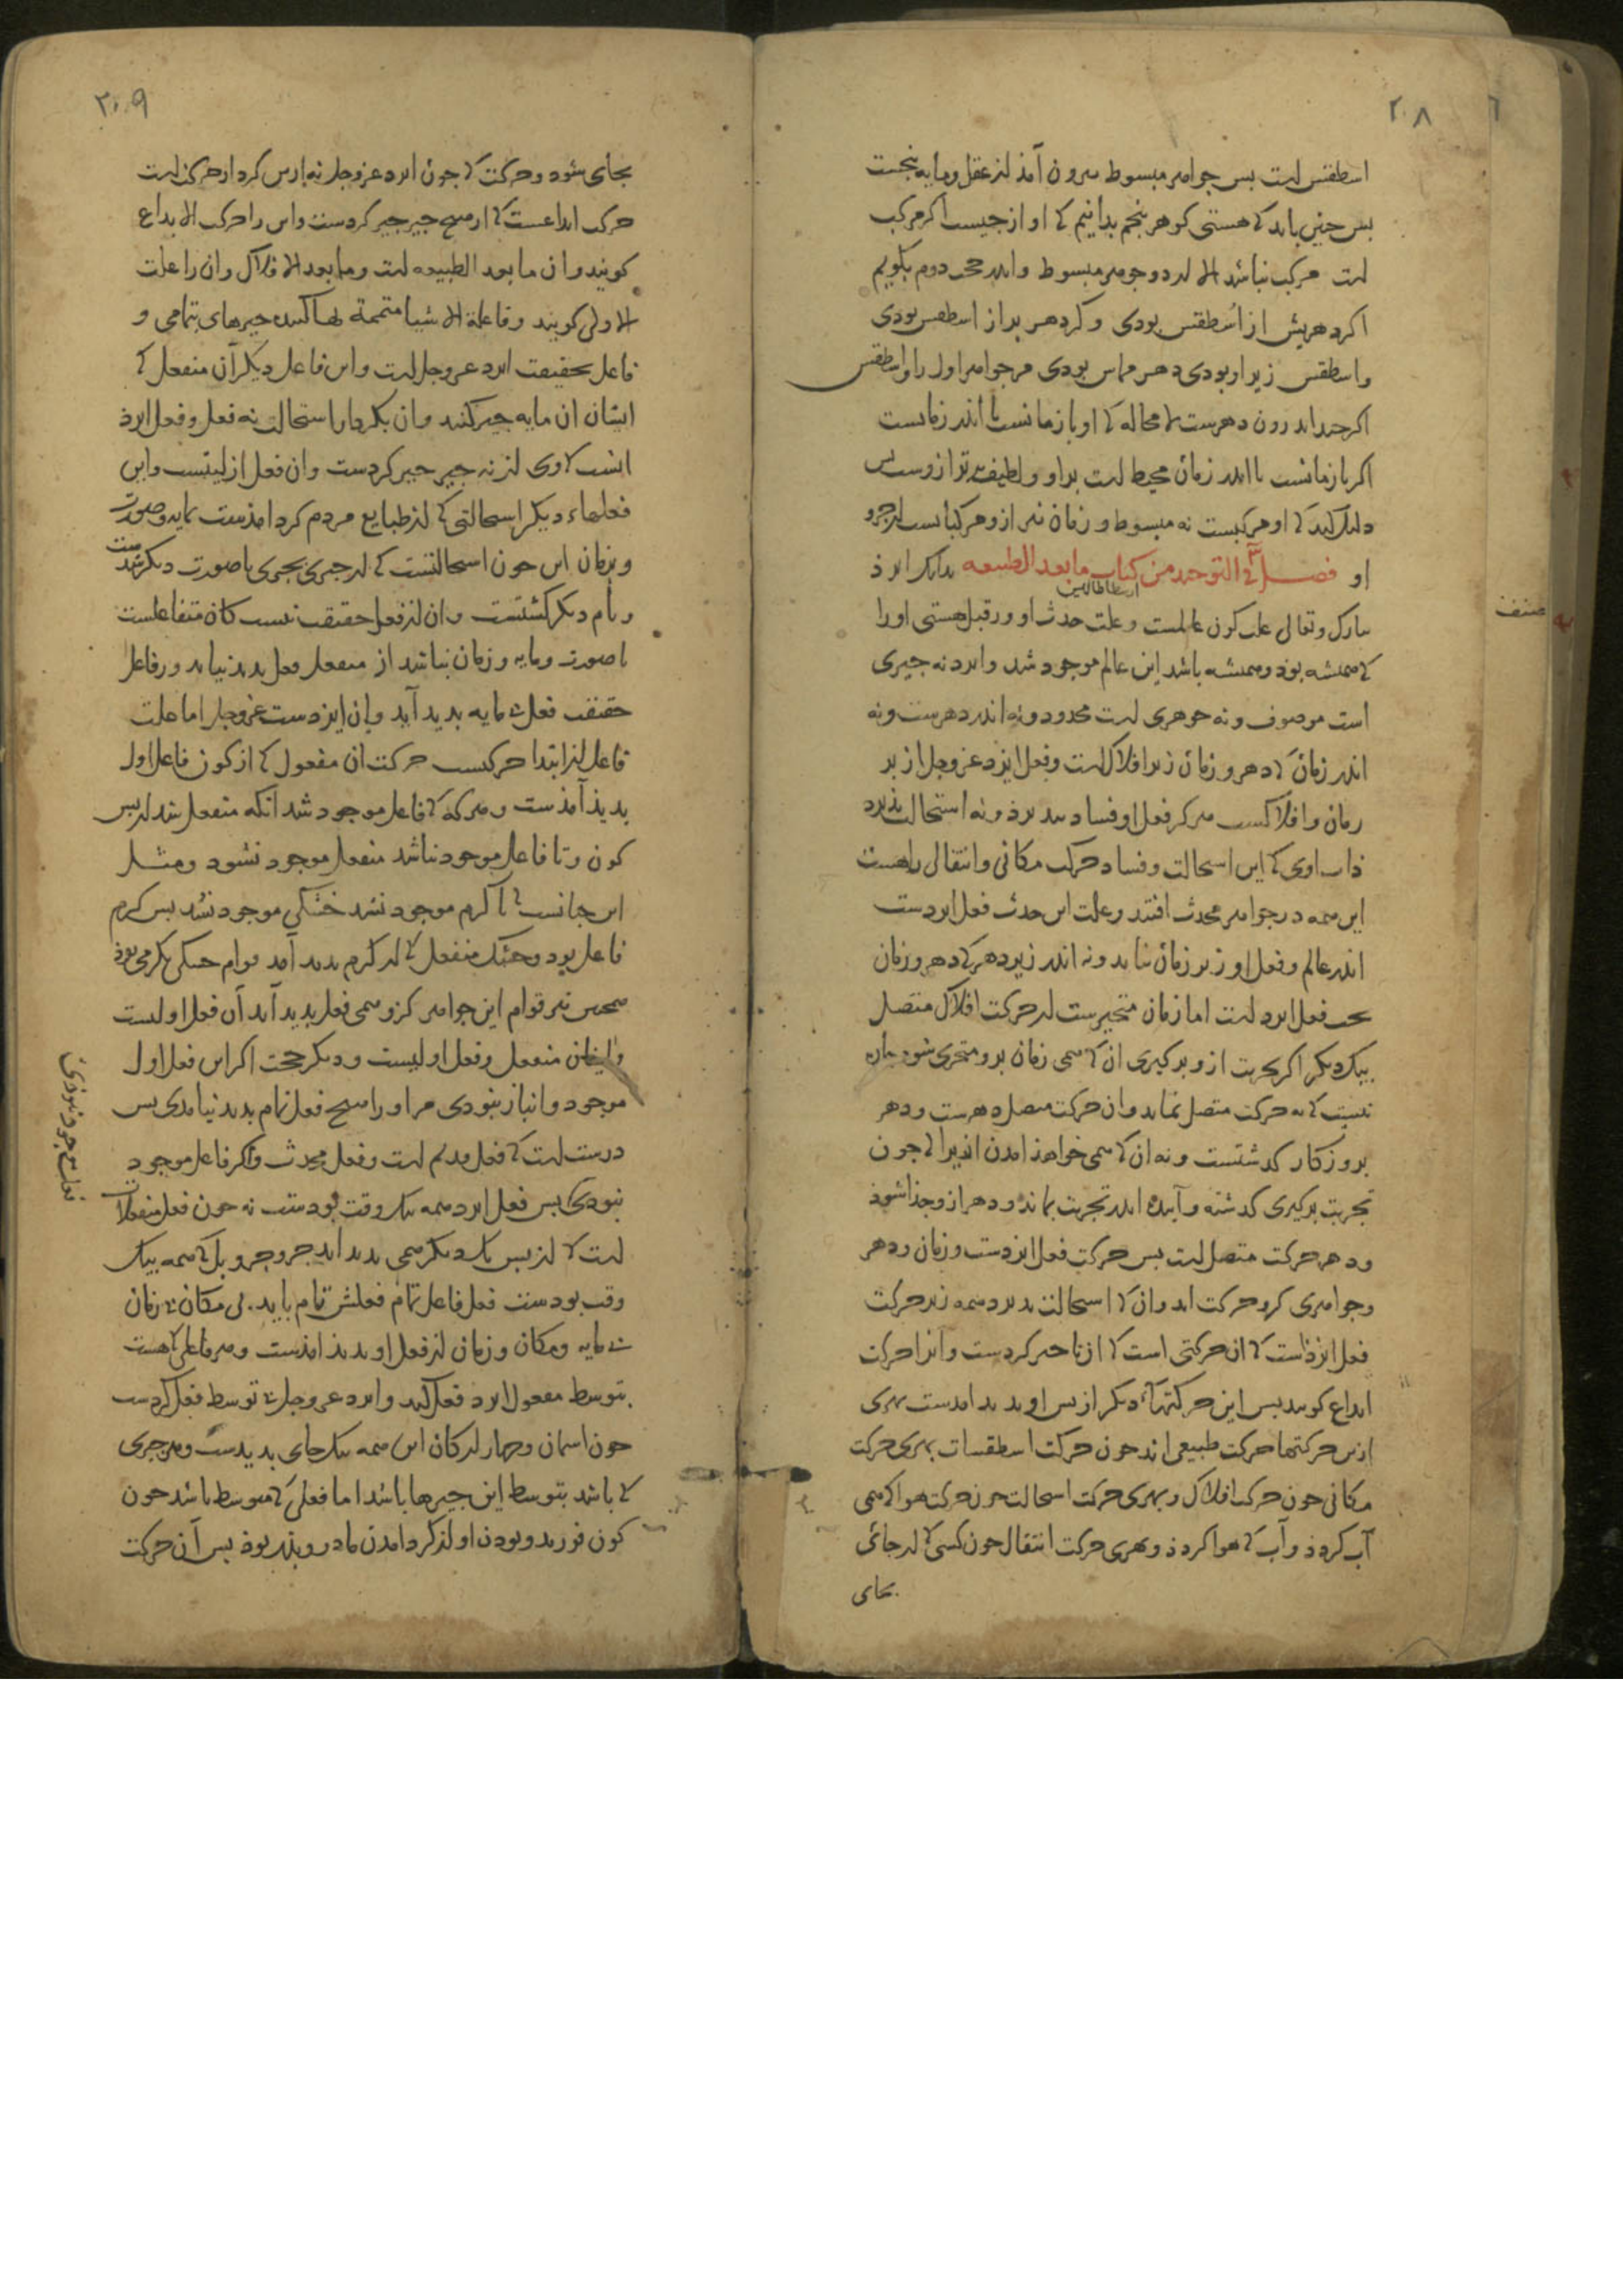 ۲۰۸
اسطقس است بس جواهر مبسوط بیرون آمذ از عقل و مایه نخست
بس جنین باید کی هستی کوهر بنجم بدانیم کی او از جیست اکر مرکب
است مرکب نباشد الا از دو جوهر مبسوط و اندر حجت دوم بکویم
اکر دهر بیش از اسطقس بودی و کر دهر بر از اسطقس بودی
و اسطقس زیر او بودی دهر مماس بودی مر جواهر اول را و اسطقس
اکر جیز اندرون دهرست لا محاله کی او با زمانست یا اندر زمانست
اکر با زمانست یا اندر زمان محیط است بر او و لطیف تر از وست بس
دلیل کند کی او مرکبست نه مبسوط و زمان نیز از و مرکباتست از جزو
او فصل فی التوحید من کتاب ما بعد الطبیعه بدانک ایزذ
ارسطاطالیس
تبارک و تعالی علت کون عالمست و علت حدث او و رقبل هستی او را
کی همیشه بوذ و همیشه باشد این عالم موجود شد و ایزد نه جیزی
است موصوف و نه جوهری است محدود و نه اندر دهرست و نه
اندر زمان کی دهر و زمان زیر افلاک است و فعل ایزد عز و جل از بر
زمان و افلاکست هرکز فعل او فساد نبذیرد و نه استحالت بذیرد
ذات اوی کی این استحالت و فساد حرکت مکانی و انتقالی راهست
این همه در جواهر محدث افتند و علت این حدث فعل ایزدست
اندر عالم و فعل او زیر زمان نیاید و نه اندر زیر دهر کی دهر و زمان
تحت فعل ایزد است اما زمان متحیرست از حرکت افلاک متصل
بیک دیکر اکر تجربت از و برکیری ان کی همی زمان بر و متجزی شود باره
نیست کی نه حرکت متصل نماید و ان حرکت متصل دهرست و دهر
بروزکار کذشتست و نه ان کی همی خواهذ امدن ازیرا کی جون
تجربت برکیری کذشته و آینده اندر تجربت بماند و دهر از و جذا شوذ
و دهر حرکت متصل است بس حرکت فعل ایزدست و زمان و دهر
و جواهری کرو حرکت اید و ان کی استحالت بذیرد همه زیر حرکت
فعل ایزذست کی ان حرکتی است کی از نا جیز کردست و آنرا حرکت
ابداع کویند بس این حرکتهاء دیکر از بس او بدید امدست بهری
ازین حرکتها حرکت طبیعی اند جون حرکت اسطقسات بهری حرکت
مکانی جون حرکت افلاک و بهری حرکت استحالت جون حرکت هوا کی همی
آب کردذ و آب کی هوا کردذ و بهری حرکت انتقال جون کسی کی از جائی
بجای
صنف
۲۰۹
بجای شود و حرکت کی جون ایزد عز و جل نه ازین کردار حرکت است
حرکت ابداعست کی از هیچ جیز جیز کردست و این را حرکت الابداع
کویند و ان ما بعد الطبیعه است و ما بعد الافلاک و ان را علت
الاولی کویند و فاعلة الاشیا متممة لها کننده جیزهای بتمامی و
فاعل بحقیقت ایزد عز و جل است و این فاعل دیکر آن منفعل کی
ایشان ان مایه جیز کنند و ان بکردار استحالت نه فعل و فعل ایزذ
انست کی وی از نه جیز جیز کردست و ان فعل ازلیتست و این
فعلهاء دیکر استحالتی کی از طبایع مردم کرد امذست بمایه و صورت
و بزمان این جون استحالتست کی از جیزی بجیزی با صورت دیکر شدست
و نام دیکر کشتست و ان از فعل حقیقت نیست کان متفاعلست
با صورت و مایه و زمان نباشد از منفعل فعل بدید نیاید و رفاعل
حقیقت فعل بی مایه بدید آید و ان ایزدست عز و جل اما علت
فاعل از ابتدا حرکتست حرکت ان مفعول کی از کون فاعل اول
بدیذ آمذست و هرکه کی فاعل موجود شد انکه منفعل شد از بس
کون و تا فاعل موجود نباشد منفعل موجود نشود و مثل
این جنانست کی تا کرم موجود نشد خشکی موجود نشد بس کرم
فاعل بود و خشک منفعل کی از کرم بدید آمد قوام خشکی بکرمی بوذ
همجنین نیز قوام این جواهر کزو همی فعل بدید آید آن فعل اولست
و ایشان منفعل و فعل اولیست و دیکر حجت اکر این فعل اول
موجود و انباز نبودی مر او را هیچ فعل تمام بدید نیامدی بس
درست است کی فعل قدیم است و فعل محدث و اکر فاعل موجود
نبودی بس فعل ایزد همه بیک وقت بودست نه جون فعل منفعلات
فعلش موجود نبوذی
است کی از بس یک دیکر همی بدید اید جزو جزو بل کی همه بیک
وقت بودست فعل فاعل تمام فعلش تمام باید بی مکان بی زمان
بی مایه و مکان و زمان از فعل او بدید امذست و هر فاعلی کی هست
بتوسط مفعول ایزد فعل کند و ایزد عز و جل بی توسط فعل کردست
جون اسمان و جهار ارکان این همه بیک جای بدیدست و هر جیزی
کی باشد بتوسط این جیزها باشد اما فعلی کی متوسط باشد جون
کون فرزند و بودن او از کرد امدن مادر و بذر بوذ بس آن حرکت